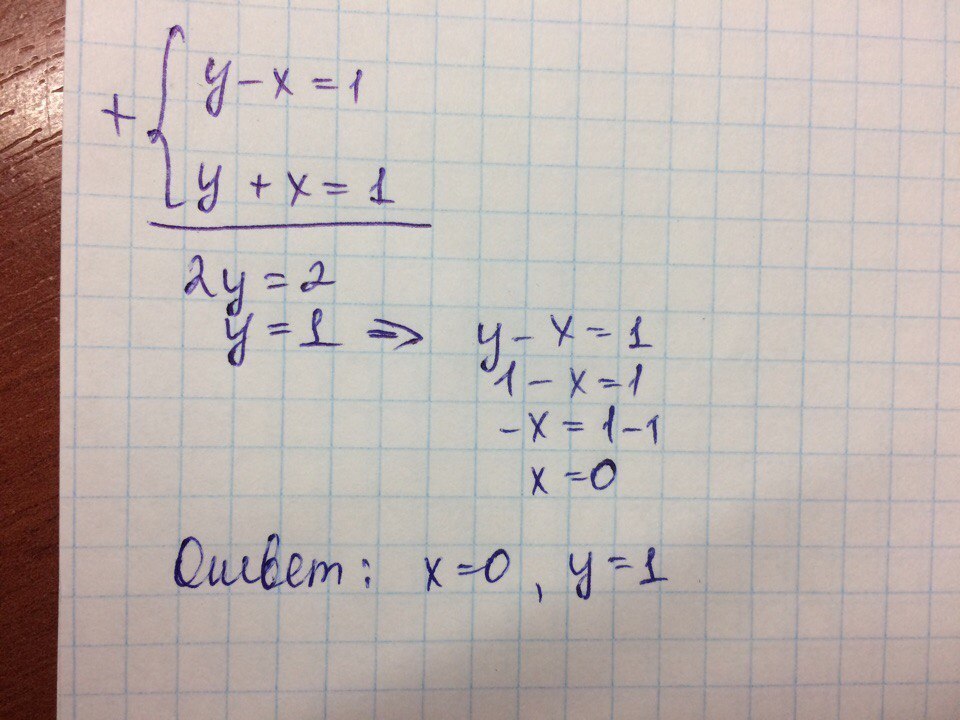 + { y - x = 1
y + x = 1
2y = 2
y = 1 ⇒ y - x = 1
1 - x = 1
-x = 1 - 1
x = 0
Ответ: x = 0, y = 1